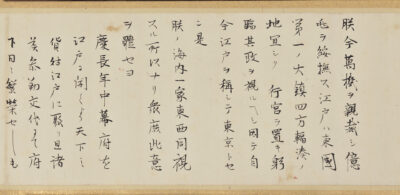 朕今萬機ヲ親裁シ億
兆ヲ綏撫ス江戸ハ東國
第一ノ大鎮四方輻湊ノ
地宜シク 行宮ヲ置キ躬
臨其政ヲ視ルヘシ因テ自
今江戸ヲ稱シテ東京トセ
ン是
朕ノ海内一家東西同視
スル所以ナリ衆庶此意
ヲ體セヨ
慶長年中幕府ヲ
江戸ニ開キシヨリ天下ノ
貨財江戸ニ聚リ且諸
参勤交代 府
下日々繁榮セシモ